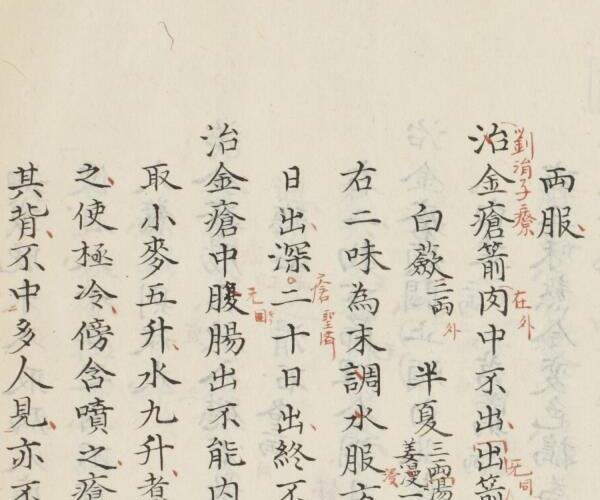 兩服
劉涓子療
治金瘡箭肉中不出出箭
在外
白蘞三兩 半夏三兩湯
外
右二味為末調水服方
日出深二十日出終不
瘡聖濟
治金瘡中腹腸出不能內
取小麥五升水九升煮
之使極冷傍含噴之瘡
其背不中多人見亦不